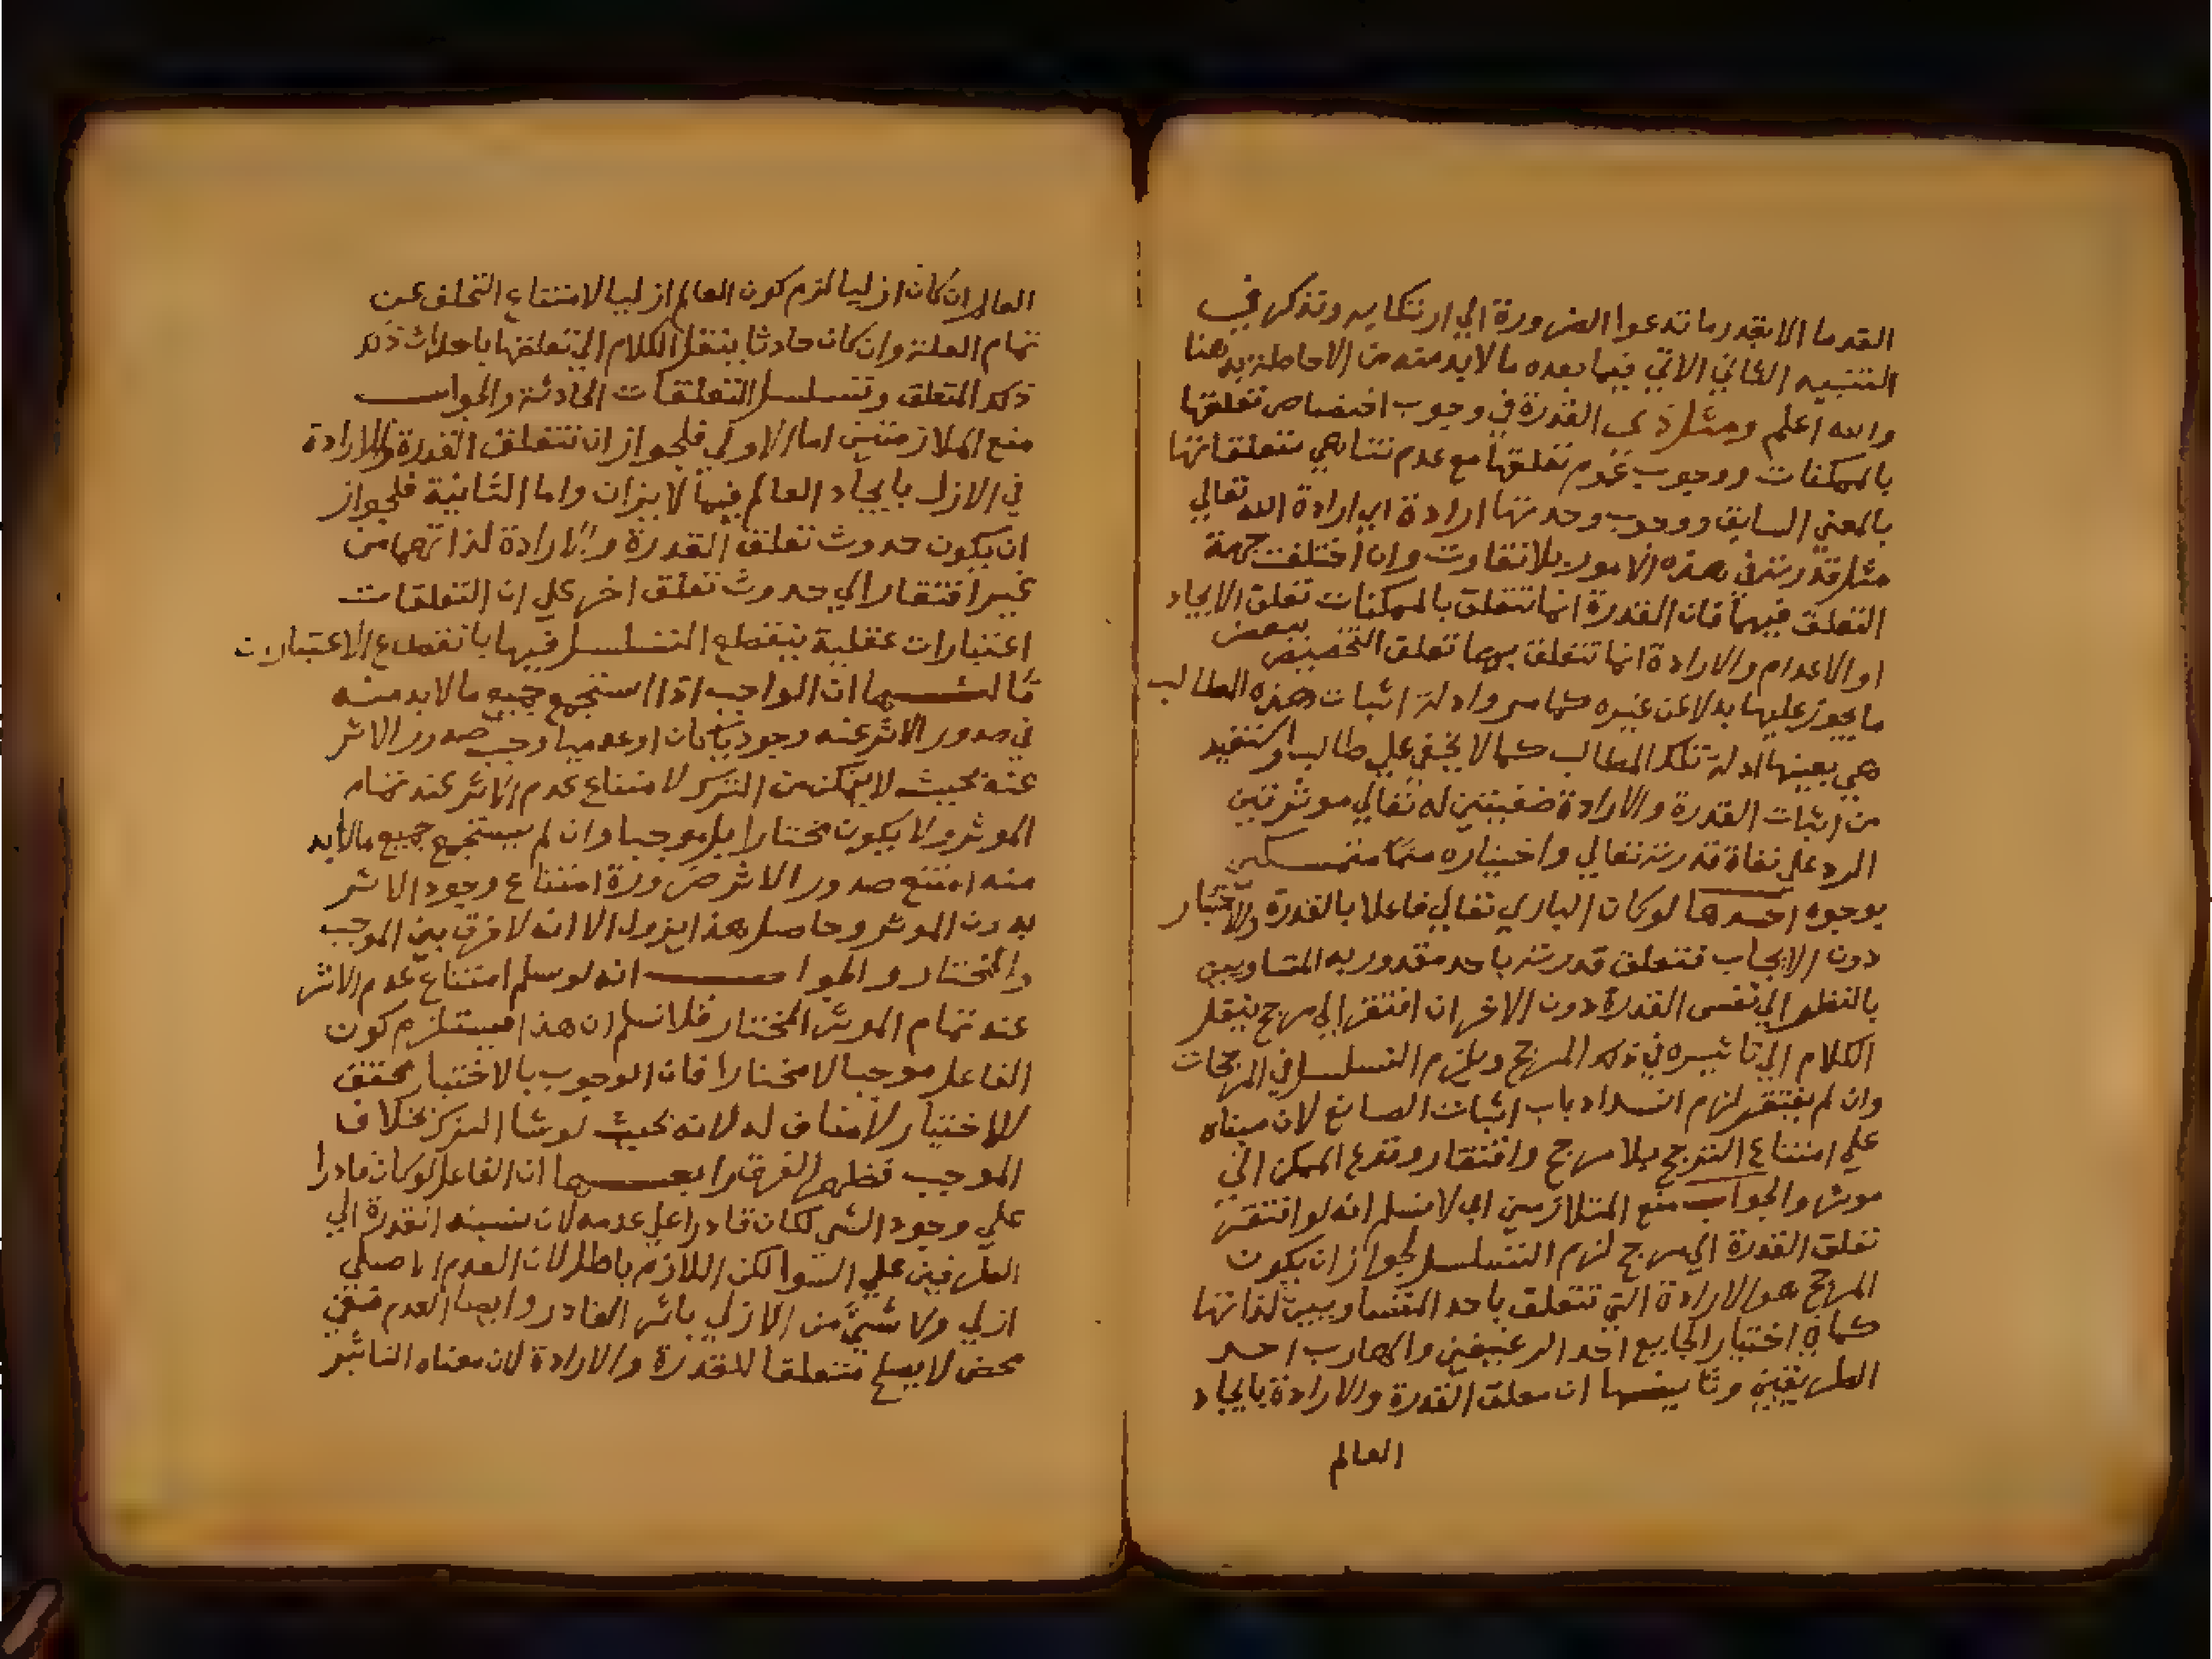 القدما الا بقدر ما تدعوا الضرورة الي ارتكابه وتذكر في
التنبيه الثاني الاتي فيما بعده ما لا بد منه من الاحاطة به هنا
والله اعلم ومثل ذي القدرة في وجوب اختصاص تعلقها
بالممكنات ووجوب عموم تعلقها مع عدم تناهي متعلقاتها
بالمعني السابق ووجوب وحدتها ارادة اي ارادة الله تعالي
مثل قدرته في هذه الامور بلا تفاوت وان اختلفت جهة
التعلق فيهما فان القدرة انما تتعلق بالممكنات تعلق الايجاد
او الاعدام والارادة انما تتعلق بها تعلق التخصيص ببعض
ما يجوز عليها بدلا عن غيره كما مر وادلة اثبات هذه المطالب
هي بعينها ادلة تلك المطالب كما لا يخفي علي طالب واستفيد
من اثبات القدرة والارادة صفيتين له تعالي موثرتين
الرد علي نفاة قدرته تعالي واختياره متمسكين
بوجوه احدها لو كان الباري تعالي فاعلا بالقدرة والاختيار
دون الايجاب فتعلق قدرته باحد مقدوريه المتساويين
بالنظر الي نفس القدرة دون الاخر ان افتقر الي مرجح ينقل
الكلام الي تاثيره في ذلك المرجح ويلزم التسلسل في المرجحات
وان لم يفتقر لزم انسداد باب اثبات الصانع لان مبناه
علي امتناع الترجح بلا مرجح وافتقار وقوع الممكن الي
موثر والجواب منع المتلازمين اي لا نسلم انه لو افتقر
تعلق القدرة الي مرجح لزم التسلسل لجواز ان يكون
المرجح هو الارادة التي تتعلق باحد المتساويين لذاتها
كما في اختيار الجايع احد الرغيفين والهارب احد
الطريقين وثانيها ان تعلق القدرة والارادة بايجاد
العالم
العالم ان كان ازليا لزم كون العالم ازليا لامتناع التخلف عن
تمام العلة وان كان حادثا ينقل الكلام الي تعلقها باحداث ذلك
ذلك التعلق وتتسلسل التعلقات الحادثة والجواب
منع الملازمتين اما الاولي فلجواز ان تتعلق القدرة والارادة
في الازل بايجاد العالم فيما لا يزال واما الثانية فلجواز
ان يكون حدوث تعلق القدرة والارادة لذاتهما من
غير افتقار الي حدوث تعلق اخر علي ان التعلقات
اعتبارات عقلية ينقطع التسلسل فيها بانقطاع الاعتبارات
ثالثها ان الواجب اذا استجمع جميع ما لا بد منه
في صدور الاثر عنه وجوديا كان او عدميا وجب صدور الاثر
عنه بحيث لا يتمكن من الترك لامتناع عدم الاثر عند تمام
الموثر ولا يكون مختارا بل موجبا وان لم يستجمع جميع ما لا بد
منه امتنع صدور الاثر ضرورة امتناع وجود الاثر
بدون الموثر وحاصل هذا يزول الا انه لا فرق بين الموجب
والمختار والجواب انه لو سلم امتناع عدم الاثر
عند تمام الموثر المختار فلا نسلم ان هذا يستلزم كون
الفاعل موجبا لا مختارا فان الوجوب بالاختيار محقق
للاختيار لا مناف له لانه بحيث لو شا الترك بخلاف
الموجب فظهر الفرق رابعها ان الفاعل لو كان قادرا
علي وجود الشي لكان قادرا علي عدمه لان نسبة القدرة الي
الطرفين علي السوا لكن اللازم باطل لان العدم الاصلي
ازلي ولا شيء من الازلي باثر القادر وايضا العدم نفي
محض لا يصلح متعلقا للقدرة والارادة لان معناه التاثير